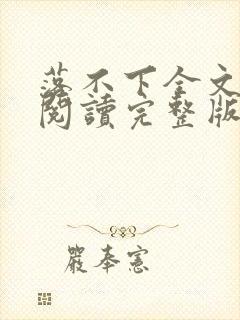 落不下全文
閱讀完整版
嚴奉憲